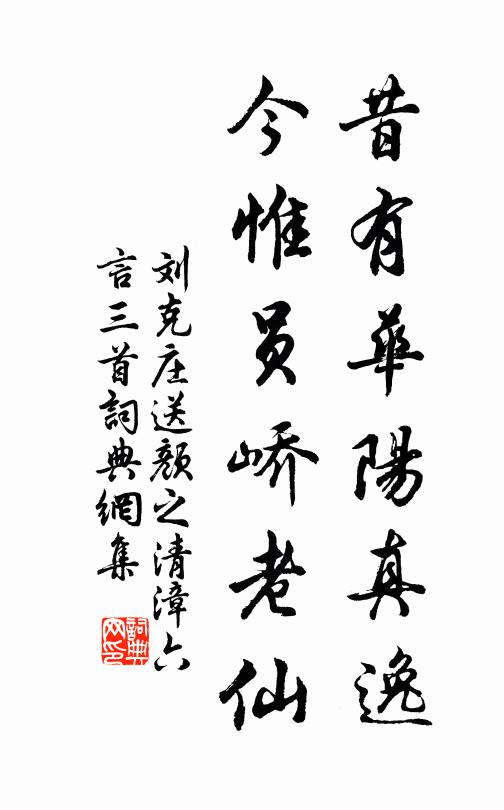 昔有華陽真逸
今惟员峤老仙
刘克庄送颜之清漳六
言三首詞典網集
詞典网印